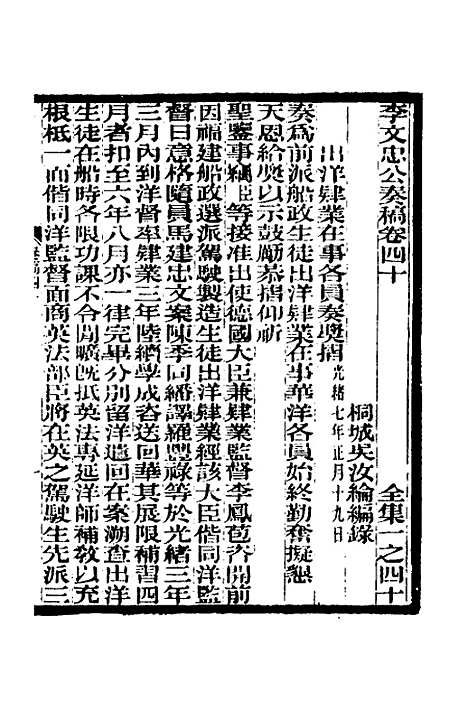 李文忠公奏稿卷四十 全集一之四十
桐城吳汝綸編錄
出洋肄業在事各員奏獎摺光緒七年正月十九日
奏爲前派船政生徒出洋肄業在事華洋各員始終勤奮擬懇
天恩給獎以示鼓勵恭摺仰祈
聖鑒事竊臣等接准出使德國大臣兼肄業監督李鳳苞咨開前
因福建船政選派駕駛製造生徒出洋肄業經該大臣偕同洋監
督日意格隨員馬建忠文案陳季同繙譯羅豐祿等於光緒三年
三月內到洋督率肄業三年陸續學成咨送回華其展限補習四
月者扣至六年八月亦一律完畢分別留洋遣回在案溯查出洋
生徒在船時各限功課不令閒曠旣抵英法專延洋師補敎以充
根柢一面偕同洋監督面商英法部臣將在英之駕駛生先派三